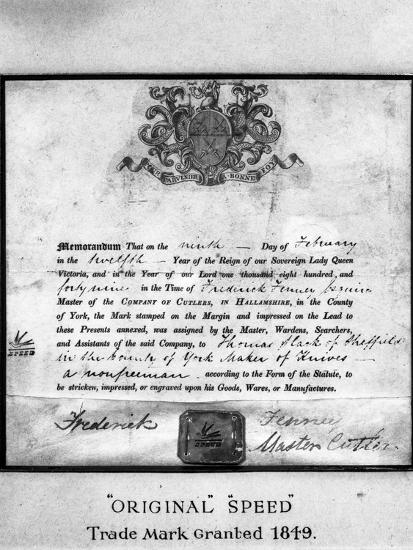 POUR Y PARVENIR A BONNE FOY
Memorandum That on the ninth Day of February
in the twelfth Year of the Reign of our Sovereign Lady Queen
Victoria, and in the Year of our Lord one thousand eight hundred, and
forty nine in the Time of Frederick Fenner Esquire
Master of the COMPANY OF CUTLERS, IN HALLAMSHIRE, in the County
of York, the Mark stamped on the Margin and impressed on the Lead to
these Presents annexed, was assigned by the Master, Wardens, Searchers,
and Assistants of the said Company, to Thomas Slack of Sheffield
in the County of York Maker of Knives
a nonfreeman according to the Form of the Statute, to
be stricken, impressed, or engraved upon his Goods, Wares, or Manufactures.
SPEED
Frederick Fenner
Master Cutler
SPEED
"ORIGINAL" "SPEED"
Trade Mark Granted 1849.